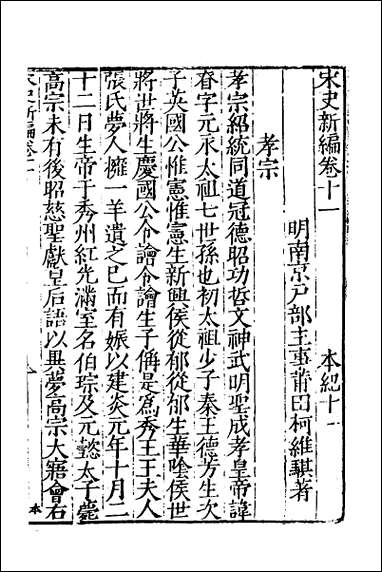 宋史新編卷十一　本紀十一
明南京戸部主事莆田柯維騏著
孝宗
孝宗紹統同道冠德昭功哲文神武明聖成孝皇帝諱
眘字元永太祖七世孫也初太祖少子秦王德芳生次
子英國公惟憲惟憲生新興侯從郁從郁生華陰侯世
將世將生慶國公令譮令譮生子偁是爲秀王王夫人
張氏夢人擁一羊遺之已而有娠以建炎元年十月二
十二日生帝于秀州紅光滿室名伯琮及元懿太子薨
高宗未有後昭慈聖獻皇后語以異夢高宗大寤會右
宋史新編卷十一
本